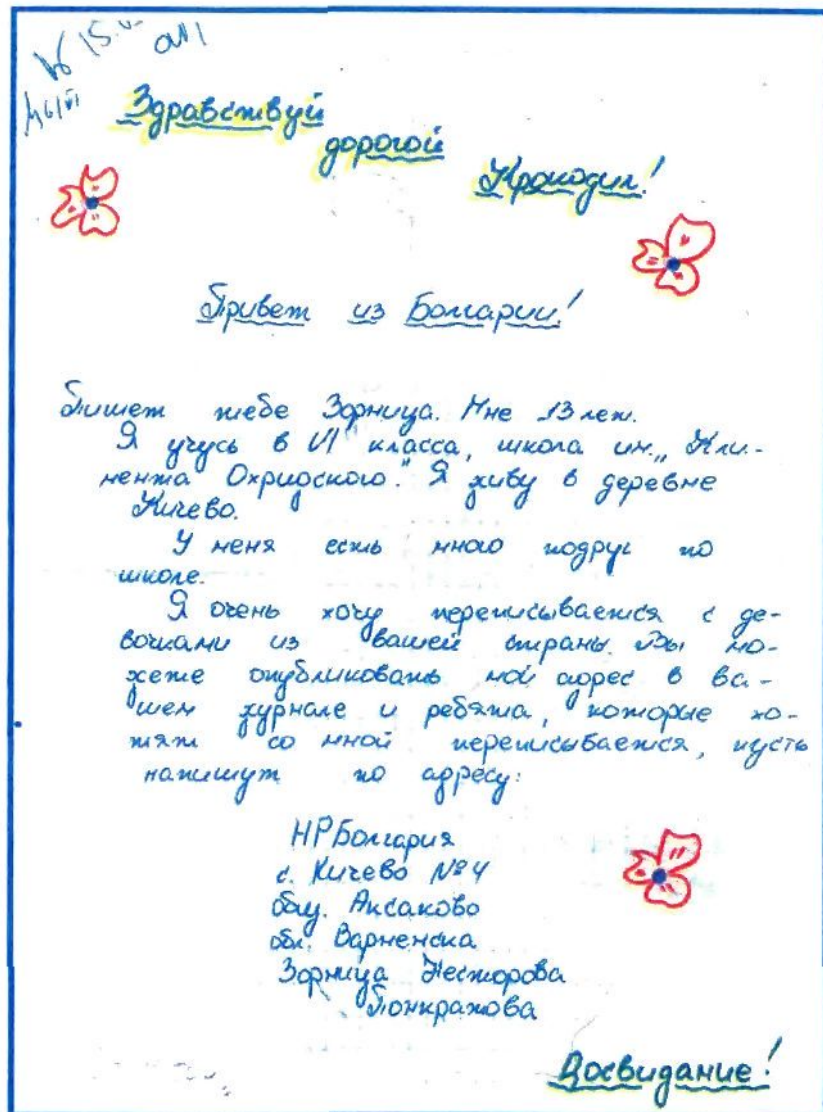 15.
Здравствуй
дорогой
Крокодил!
Привет из Болгарии!
Пишет тебе Зорница. Мне 13 лет.
Я учусь в VI класса, школа им. „Кли-
мента Охридского." Я живу в деревне
Кичево.
У меня есть много подруг по
школе.
Я очень хочу переписывается с де-
вочками из вашей страны. Вы мо-
жете опубликовать мой адрес в ва-
шем журнале и ребята, которые хо-
тят со мной переписывается, пусть
напишут по адресу:
НРБолгария
с. Кичево №4
общ. Аксаково
обл. Варненска
Зорница Несторова
Посвидание!